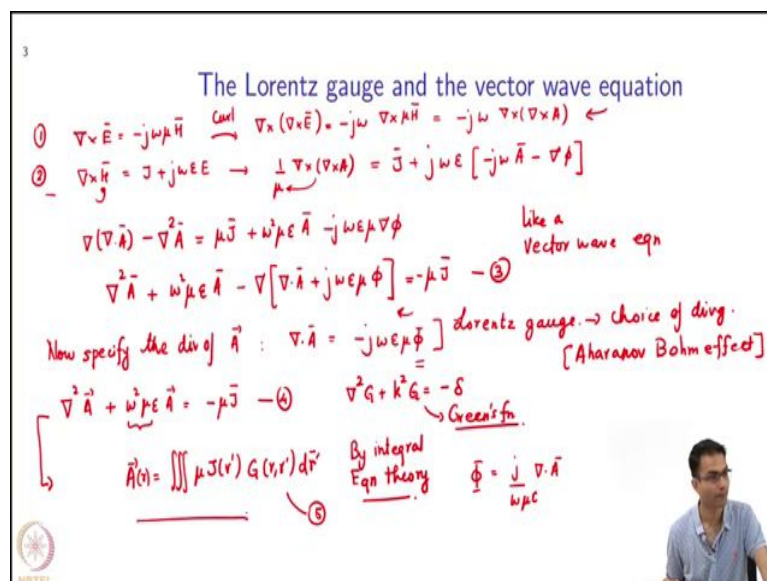 3
The Lorentz gauge and the vector wave equation
① ∇×Ē = -jωμH̄ Curl→ ∇×(∇×Ē) = -jω ∇×μH̄ = -jω ∇×(∇×A) ←
② ∇×H̄ = J + jωεE → 1/μ ∇×(∇×A) = J̄ + jωε[-jωĀ - ∇φ]
∇(∇·Ā) - ∇²Ā = μJ̄ + ω²με Ā - jωεμ∇φ
like a vector wave eqn
∇²Ā + ω²με Ā - ∇[∇·Ā + jωεμ φ] = -μJ̄ - ③
Now specify the div of A⃗ : ∇·Ā = -jωεμΦ̄ ] Lorentz gauge. → choice of divg.
[Aharanov Bohm effect]
∇²A⃗ + ω²με A⃗ = -μJ̄ - ④ ∇²G + k²G = -δ
→ Green's fn.
A⃗(r) = ∭ μJ(r') G(r,r') dr̄' By integral Eqn theory Φ̄ = j/ωμε ∇·Ā
⑤
NPTEL